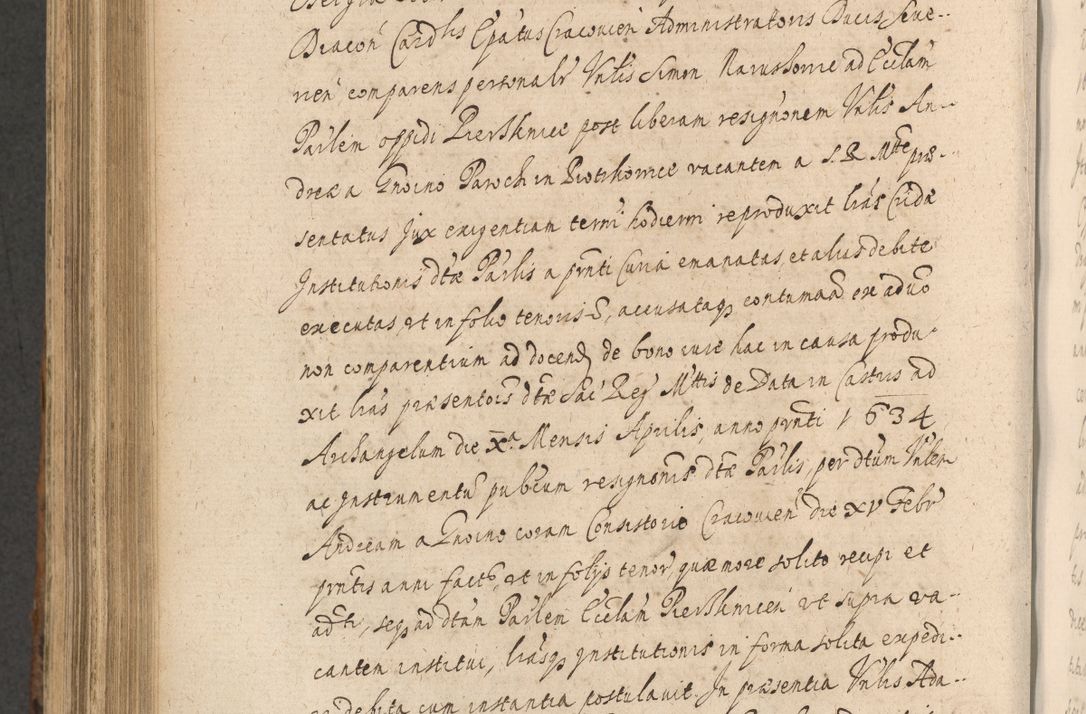 Diacoń Cardlis Epatus Cracovień Administratoris Ducis Seve-
rień comparens personalr Vnlis Simon Raruskowic ad Ecclam
Parlem oppidi Pierzchnice post liberam resignonem Vnlis An-
dreæ a Gnoino Parochi in Piotrkowice vacantem a S. R. Mtte præ-
sentatus Jux exigentiam termi hodierni reproduxit lras Cridæ
Institutionis dtæ Parlis a prnti Curia emanatas, et alius debite
executas, vt in folio tenoris –, accusataqz contumacia ex aduo
non comparentium ad docend de bono iure hac in causa produ-
xit lras præsentois dtæ Sac Reg Mttis de Data in Castris ad
Archangelum die Xa Mensis Aprilis, anno prnti 1634
ac Instrumentu pubcum resignonis dtæ Parlis, per dtum Vnlem
Andream a Gnoino coram Consistorio Cracovień die XV Febr
prntis anni facto, vt in folijs tenor, quæ more solito recipi et
adti, seqz ad dtam Parlem Ecclam Pierzchnicen vt supra va-
cantem institui, lrasqz Institutionis in forma solita expedi-
ri debita cum instantia postulavit. In præsentia Vnlis Ada-